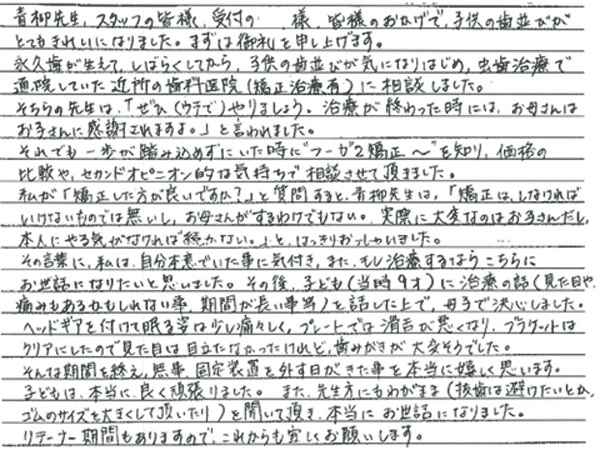 青柳先生、スタッフの皆様、受付の　　様、皆様のおかげで、子供の歯並びが
とてもきれいになりました。まずは御礼を申し上げます。
永久歯が生えて、しばらくしてから、子供の歯並びが気になりはじめ、虫歯治療で
通院していた近所の歯科医院(矯正治療有)に相談しました。
そちらの先生は、「ぜひ(ウチで)やりましょう。治療が終わった時には、お母さんは
お子さんに感謝されますよ。」と言われました。
それでも一歩が踏み込めずにいた時に"フーガ2矯正〜"を知り、価格の
比較や、セカンドオピニオン的な気持ちで相談させて頂きました。
私が「矯正した方が良いですか?」と質問すると、青柳先生は、「矯正は、しなければ
いけないものでは無いし、お母さんがするわけでもない。実際に大変なのはお子さんだし、
本人にやる気がなければ続かない。」と、はっきりおっしゃいました。
その言葉に、私は、自分本意でいた事に気付き、また、もし治療するならこちらに
お世話になりたいと思いました。その後、子ども(当時9才)に治療の話(見た目や、
痛みもあるかもしれない事、期間が長い事等)を話した上で、母子で決心しました。
ヘッドギアを付けて眠る姿は少し痛々しく、プレートでは滑舌が悪くなり、ブラケットは
クリアにしたので見た目は目立たなかったけれど、歯みがきが大変そうでした。
そんな期間を終え、無事、固定装置を外す日がきた事を本当に嬉しく思います。
子どもは、本当に良く頑張りました。また、先生方にもわがまま(抜歯は避けたいとか、
ゴムのサイズを大きくして頂いたり)を聞いて頂き、本当にお世話になりました。
リテーナー期間もありますので、これからも宜しくお願いします。